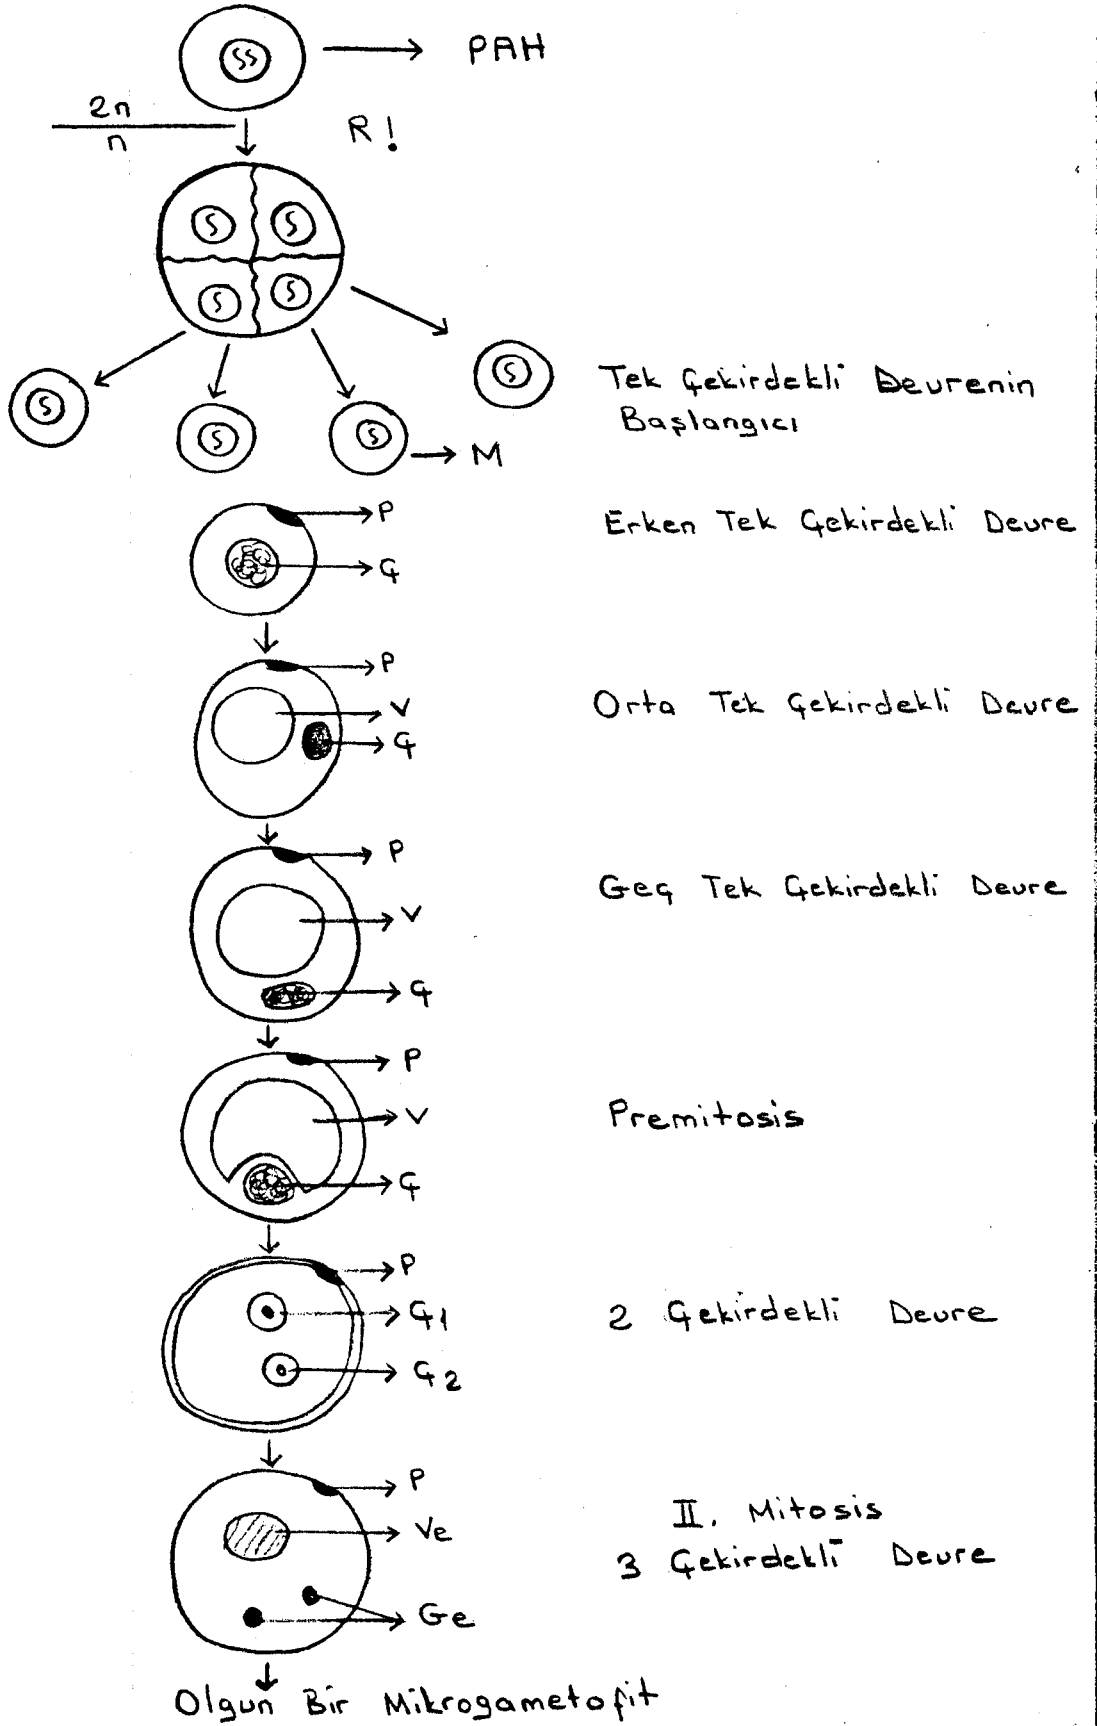 SS
PAH
2n
n
R!
S S
S S
S
S
S
S
Tek Çekirdekli Devrenin
Başlangıcı
M
P
Ç
Erken Tek Çekirdekli Devre
P
V
Ç
Orta Tek Çekirdekli Devre
P
V
Ç
Geç Tek Çekirdekli Devre
P
V
Ç
Premitosis
P
Ç1
Ç2
2 Çekirdekli Devre
P
Ve
Ge
II. Mitosis
3 Çekirdekli Devre
Olgun Bir Mikrogametofit